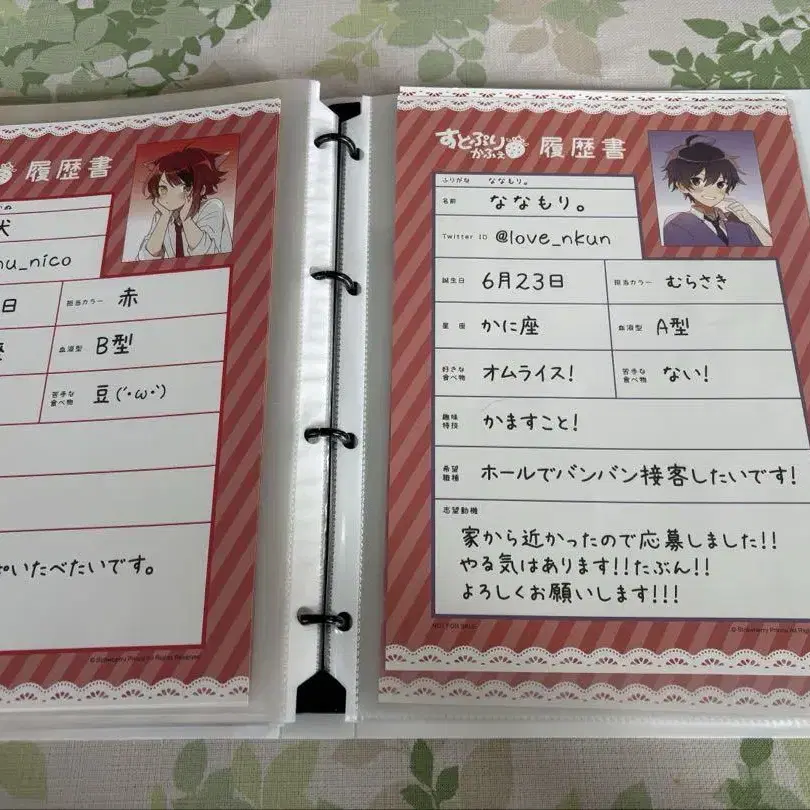 履歴書
犬
nu_nico
日
担当カラー 赤
血液型 B型
苦手な
食べ物
豆(´･ω･`)
いたべたいです。
© Strawberry Prince All Rights Reserved.
すとぷり
かふぇ
履歴書
ふりがな ななもり。
名前 ななもり。
Twitter ID @love_nkun
誕生日 6月23日
担当カラー むらさき
星座 かに座
血液型 A型
好きな
食べ物
オムライス!
苦手な
食べ物
ない!
趣味
特技
かますこと!
希望
職種
ホールでバンバン接客したいです!
志望動機
家から近かったので応募しました!!
やる気はあります!!たぶん!!
よろしくお願いします!!!
NOT FOR SALE
© Strawberry Prince All Rig